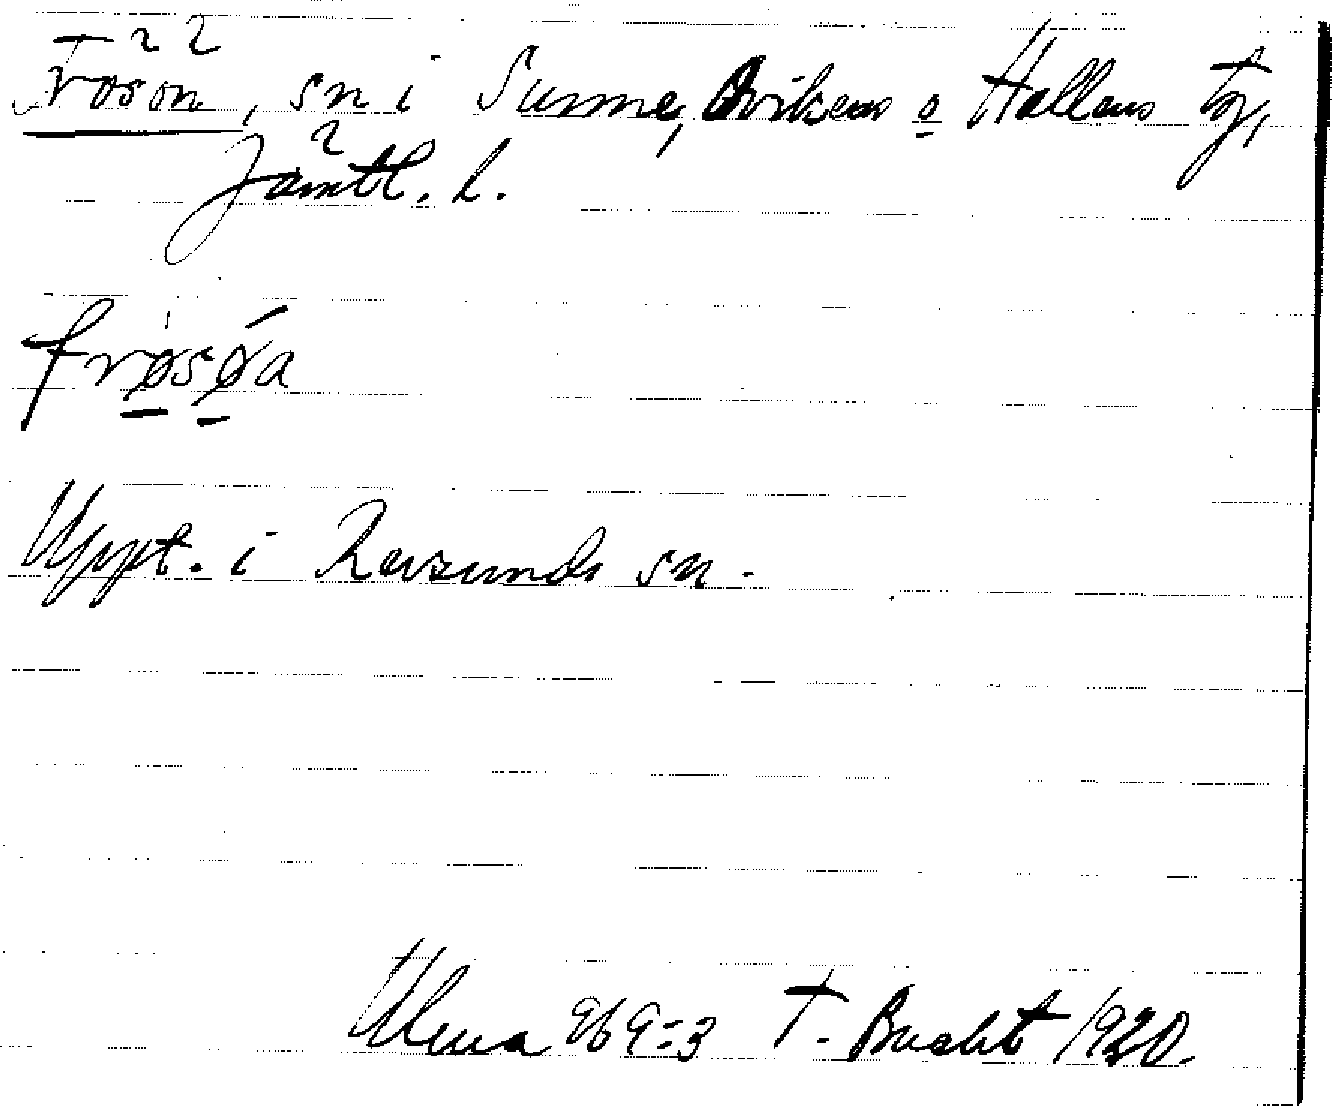 Frösön, sn i Sunne, Ovikens o Hallens tg,
Jämtl. l.
frøsǿa
Uppt. i Revsunds sn.
Ulma 969:3 T. Bucht 1920.